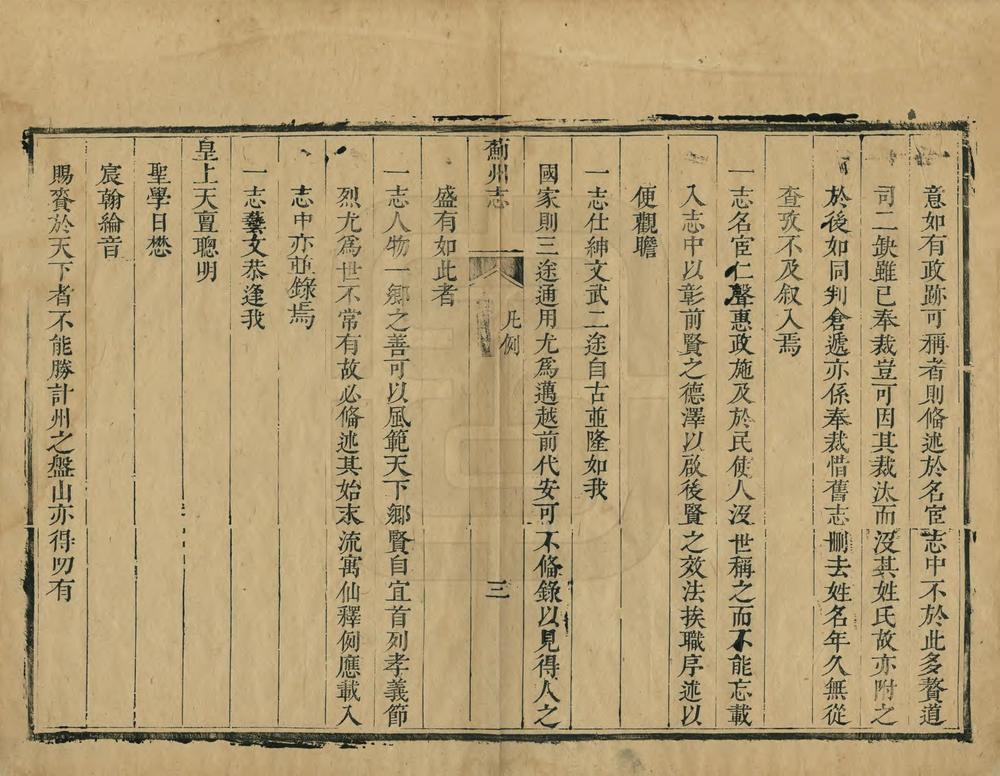 意如有政跡可稱者則偹述於名宦志中不於此多贅道
司二缺雖已奉裁豈可因其裁汰而沒其姓氏故亦附之
於後如同判倉遞亦係奉裁惜舊志刪去姓名年久無從
查攷不及叙入焉
一志名宦仁聲惠政施及於民使人沒世稱之而不能忘載
入志中以彰前賢之德澤以啟後賢之效法挨職序述以
便觀瞻
一志仕紳文武二途自古並隆如我
國家則三途通用尤爲邁越前代安可不偹錄以見得人之
薊州志
凡例
三
盛有如此者
一志人物一鄉之善可以風範天下鄉賢自宜首列孝義節
烈尤爲世不常有故必偹述其始末流寓仙釋例應載入
志中亦並錄焉
一志藝文恭逢我
皇上天亶聰明
聖學日懋
宸翰綸音
賜賚於天下者不能勝計州之盤山亦得叨有